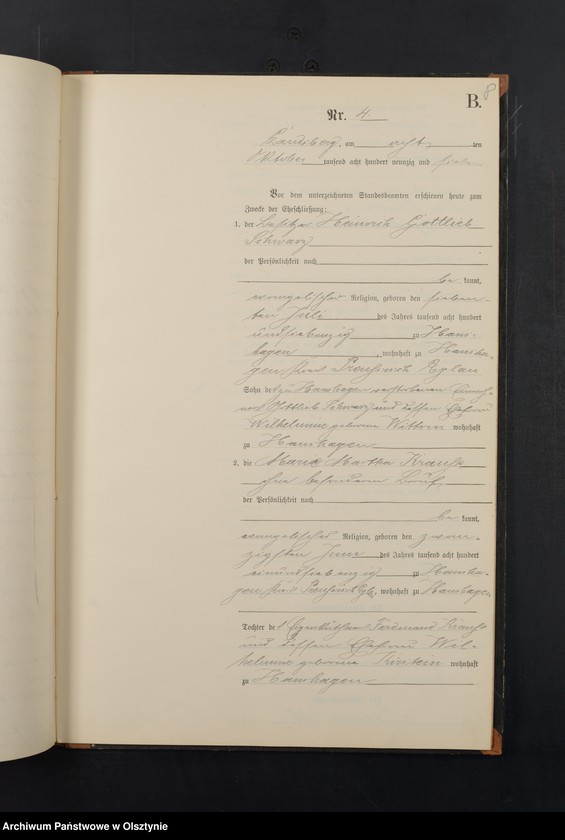 B.
8
Nr. 4.
Landsberg, am acht ten
Oktober tausend acht hundert neunzig und sieben
Vor dem unterzeichneten Standesbeamten erschienen heute zum
Zwecke der Eheschließung:
1. der Besitzer Heinrich Gottlieb
Schwarz
der Persönlichkeit nach
be kannt,
evangelischer Religion, geboren den sieben-
ten Juli des Jahres tausend acht hundert
undsiebenzig zu Hans-
hagen, wohnhaft zu Hansha-
gen Kreis Preußisch Eylau
Sohn des zu Hanshagen verstorbenen
Gottlieb Schwarz und dessen Ehefrau
Wilhelmine geborene wohnhaft
zu Hanshagen
2. die Marie Martha Krause
ohne besonderen Beruf,
der Persönlichkeit nach
be kannt,
evangelischer Religion, geboren den zwan-
zigsten Juni des Jahres tausend acht hundert
einundsiebenzig zu Hansha-
gen Kreis, wohnhaft zu Hanshagen
Tochter des Eigenkäthner Ferdinand Krause
und dessen Ehefrau Wil-
helmine geborene wohnhaft
zu Hanshagen
B.
Archiwum Państwowe w Olsztynie